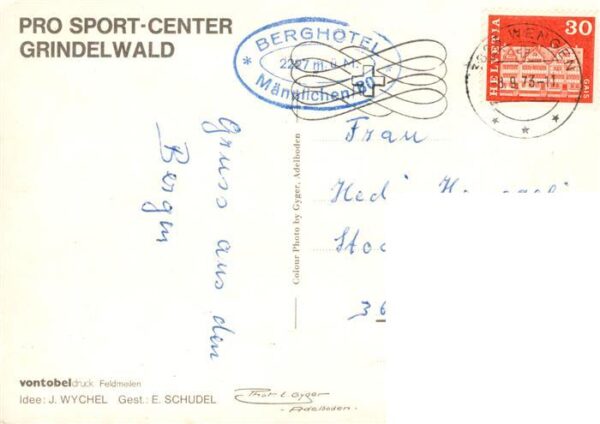 PRO SPORT-CENTER
GRINDELWALD
BERGHOTEL
2227 m ü. M.
* Männlichen BO
3823 WENGEN
73-11
* * *
HELVETIA
30
GAIS
Gruss aus den
Bergen
Colour Photo by Gyger, Adelboden
Frau
Hedi
Stoc
36
vontobeldruck Feldmeilen
Idee: J. WYCHEL Gest.: E. SCHUDEL
Phot E. Gyger
- Adelboden -